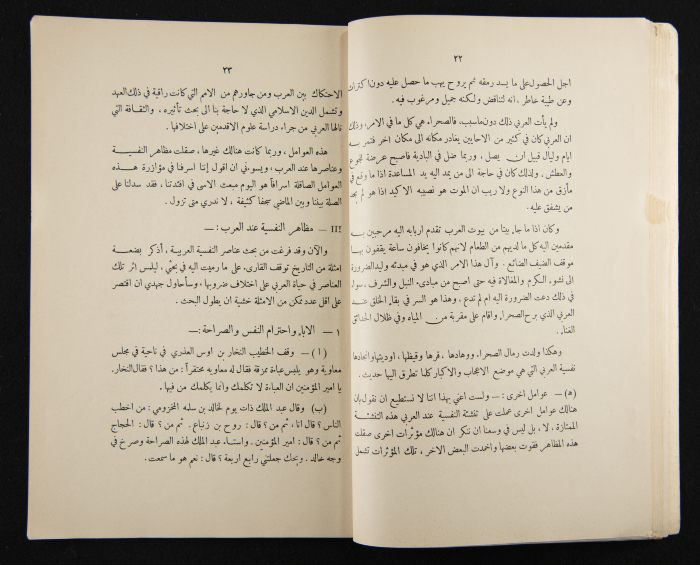 ٢٢
اجل الحصول على ما يسد رمقه ثم يروح يهب ما حصل عليه دون اكتراث
وعن طيبة خاطر ، انه لتناقض ولكنه جميل ومرغوب فيه .
ولم يأت العربي ذلك دون ماسبب، فالصحراء هي كل ما في الامر، وذلك
ان العربي كان في كثير من الاحايين يغادر مكانه الى مكان اخر فتمر به
ايام وليال قبيل ان يصل ، وربما ضل في البادية فاصبح عرضة للجوع
والعطش ، ولذلك كان في حاجة الى من يمد اليه يد المساعدة اذا ما وقع في
مأزق من هذا النوع ولا ريب ان الموت هو نصيبه الاكيد اذا هو لم يجد
من يشفق عليه .
وكان اذا ما جاء بيتا من بيوت العرب تقدم اربابه اليه مرحبين به
مقدمين اليه كل ما لديهم من الطعام لانهم كانوا يخافون ساعة يقفون بها
موقف الضيف الضائع . وآل هذا الامر الذي هو في مبدئه وليد الضرورة
الى نشوء الكرم والمغالاة فيه حتى اصبح من مبادىء النبل والشرف ، سواء
في ذلك دعت الضرورة اليه ام لم تدع ، وهذا هو السر في بقاء الخلق عند
العربي الذي برح الصحراء واقام على مقربة من المياه وفي ظلال الحدائق
الغناء .
وهكذا ولدت رمال الصحراء ووهادها ، قرها وقيظها ، اوديتها وانجادها
نفسية العربي التي هي موضع الاعجاب والاكبار كلما تطرق اليها حديث .
(ه) — عوامل اخرى : — ولست اعني بهذا اننا لا نستطيع ان نقول بان
هنالك عوامل اخرى عملت على تنشئة النفسية عند العربي هذه التنشئة
الممتازة ، لا ، بل ليس في وسعنا ان ننكر ان هنالك مؤثرات اخرى صقلت
هذه المظاهر فقوت بعضها واخمدت البعض الاخر ، تلك المؤثرات تشمل
٢٣
الاحتكاك بين العرب ومن جاورهم من الامم التي كانت راقية في ذلك العهد
وتشمل الدين الاسلامي الذي لا حاجة بنا الى بحث تأثيره ، والثقافة التي
نالها العربي من جراء دراسة علوم الاقدمين على اختلافها .
هذه العوامل ، وربما كانت هنالك غيرها ، صقلت مظاهر النفسية
وعناصرها عند العرب ، ويسوءني ان اقول إننا اسرفنا في مؤازرة هذه
العوامل الصاقلة اسرافاً هو اليوم مبعث الاسى في افئدتنا ، فقد سدلنا على
الصلة بيننا وبين الماضي سجفاً كثيفة ، لا ندري متى تزول .
III — مظاهر النفسية عند العرب : —
والآن وقد فرغت من بحث عناصر النفسية العربية ، أذكر بضعة
امثلة من التاريخ توقف القارىء على ما رميت اليه في بحثي ، ليلمس اثر تلك
العناصر في حياة العربي على اختلاف ضروبها ، وسأحاول جهدي ان اقتصر
على اقل عدد ممكن من الامثلة خشية ان يطول البحث .
١ — الاباء واحترام النفس والصراحة : —
(١) — وقف الخطيب النخار بن اوس العذري في ناحية في مجلس
معاوية وهو يلبس عباءة ممزقة فقال له معاويه محتقراً : من هذا ؟ فقال النخار.
يا امير المؤمنين ان العباءة لا تكلمك وانما يكلمك من فيها .
(ب) — وقال عبد الملك ذات يوم لخالد بن سلمه المخزومي : من اخطب
الناس ؟ قال انا ، ثم من ؟ قال : روح بن زنباع . ثم من ؟ قال : الحجاج
ثم من ؟ قال : امير المؤمنين . واستاء عبد الملك لهذه الصراحة وصرخ في
وجه خالد . ويحك جعلتني رابع اربعة ؟ قال : نعم هو ما سمعت .